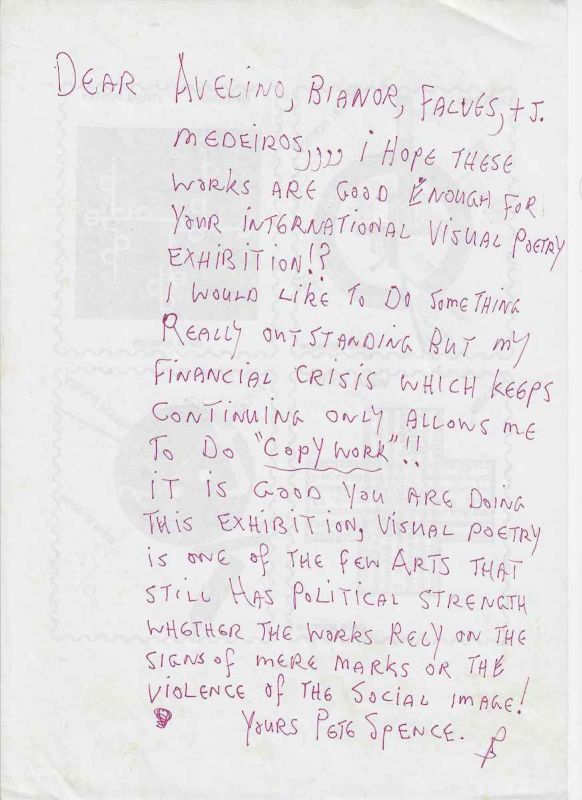 DEAR AVELINO, BIANOR, FALVES, + J.
MEDEIROS,,,, i HOPE THESE
WORKS ARE GOOD ENOUGH FOR
YOUR INTERNATIONAL VISUAL POETRY
EXHIBITION!?
I WOULD LIKE TO DO SOMETHING
REALLY OUTSTANDING BUT MY
FINANCIAL CRISIS WHICH KEEPS
CONTINUING ONLY ALLOWS ME
TO DO "COPY WORK"!!
iT IS GOOD YOU ARE DOING
THIS EXHIBITION, VISUAL POETRY
IS ONE OF THE FEW ARTS THAT
STILL HAS POLITICAL STRENGTH
WHETHER THE WORKS RELY ON THE
SIGNS OF MERE MARKS OR THE
VIOLENCE OF THE SOCIAL IMAGE!
YOURS PETE SPENCE.